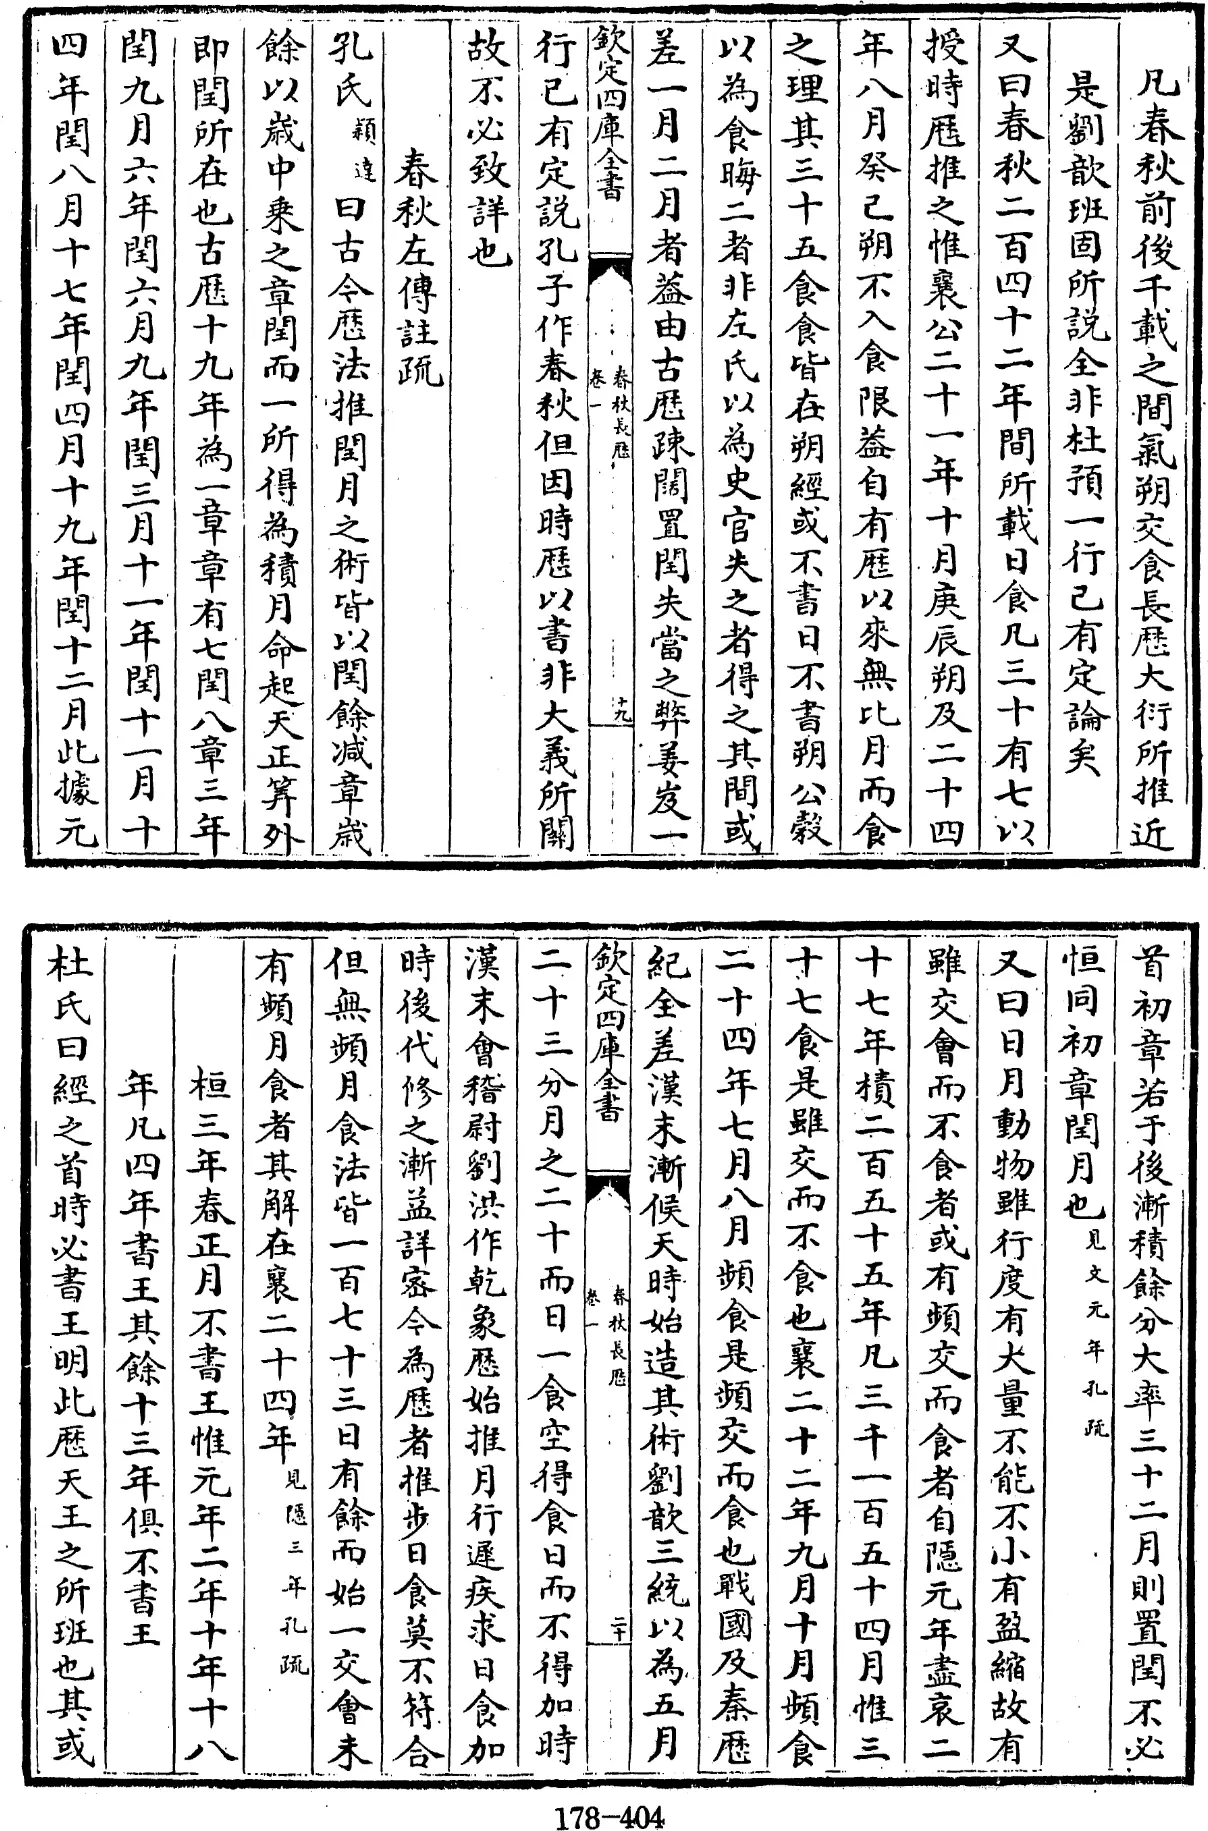 凡春秋前後千載之間氣朔交食長厯大衍所推近
是劉歆班固所説全非杜預一行已有定論矣
又曰春秋二百四十二年間所載日食凡三十有七以
授時厯推之惟襄公二十一年十月庚辰朔及二十四
年八月癸己朔不入食限葢自有厯以來無比月而食
之理其三十五食食皆在朔經或不書日不書朔公穀
以為食晦二者非左氏以為史官失之者得之其間或
差一月二月者葢由古厯疎闊置閏失當之弊姜岌一
欽定四庫全書
春秋長厯
卷一
十九
行已有定説孔子作春秋但因時厯以書非大義所關
故不必致詳也
春秋左傳註疏
孔氏穎達曰古今厯法推閏月之術皆以閏餘減章歲
餘以歲中乗之章閏而一所得為積月命起天正筭外
即閏所在也古厯十九年為一章章有七閏八章三年
閏九月六年閏六月九年閏三月十一年閏十一月十
四年閏八月十七年閏四月十九年閏十二月此據元
首初章若于後漸積餘分大率三十二月則置閏不必
恒同初章閏月也見文元年孔疏
又曰日月動物雖行度有大量不能不小有盈縮故有
雖交會而不食者或有頻交而食者自隱元年盡哀二
十七年積二百五十五年凡三千一百五十四月惟三
十七食是雖交而不食也襄二十二年九月十月頻食
二十四年七月八月頻食是頻交而食也戰國及秦厯
紀全差漢末漸候天時始造其術劉歆三統以為五月
欽定四庫全書
春秋長厯
卷一
二十
二十三分月之二十而日一食空得食日而不得加時
漢末會稽尉劉洪作乾象厯始推月行遲疾求日食加
時後代修之漸益詳宻今為厯者推步日食莫不符合
但無頻月食法皆一百七十三日有餘而始一交會未
有頻月食者其解在襄二十四年見隱三年孔疏
桓三年春正月不書王惟元年二年十年十八
年凡四年書王其餘十三年俱不書王
杜氏曰經之首時必書王明此厯天王之所班也其或
178-404